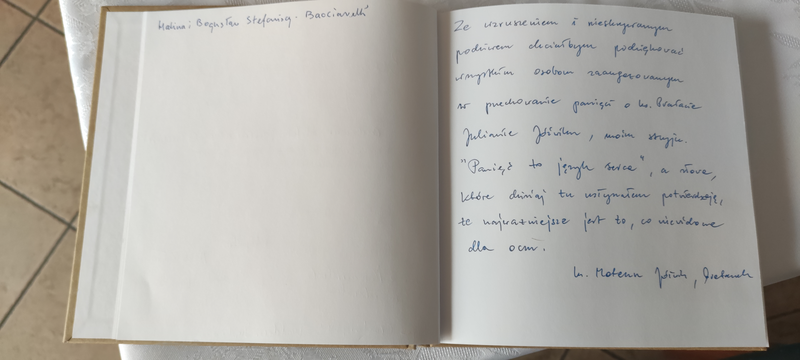 Halina i Bogusław Stefonia. Bacciarelli
Ze wzruszeniem i nieskrywanym
podziwem chciałbym podziękować
wszystkim osobom zaangażowanym
w przechowanie pamięci o ks. Prałacie
Julianie, moim stryju.
"Pamięć to język serca", a słowa,
które dzisiaj tu usłyszałem potwierdzają,
że najważniejsze jest to, co niewidome
dla oczu.
ks. Mateusz